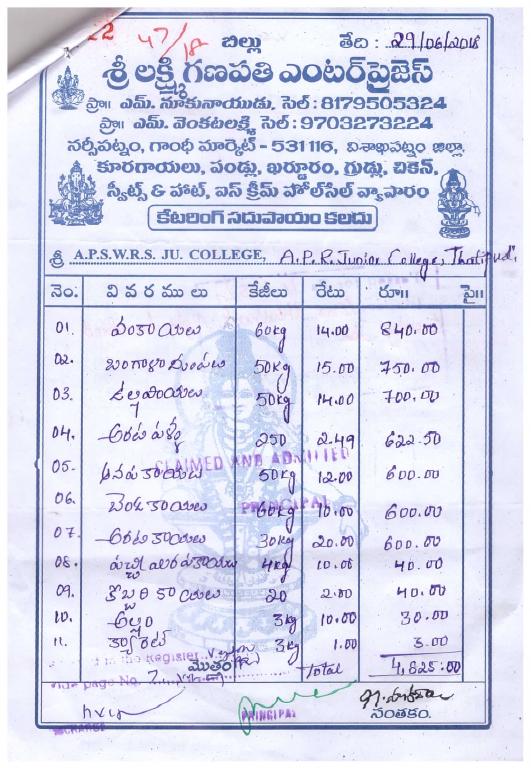 22 47/18 బిల్లు తేది : 29/06/2018
శ్రీ లక్ష్మి గణపతి ఎంటర్‌ప్రైజెస్
ప్రొ॥ ఎమ్. నూకునాయుడు, సెల్ : 8179505324
ప్రొ॥ ఎమ్. వెంకటలక్ష్మి, సెల్ : 9703273224
నర్సీపట్నం, గాంధీ మార్కెట్ - 531116, విశాఖపట్నం జిల్లా,
కూరగాయలు, పండ్లు, ఖర్జూరం, గ్రుడ్లు, చికెన్,
స్వీట్స్ & హాట్, ఐస్ క్రీమ్ హోల్‌సేల్ వ్యాపారం
కేటరింగ్ సదుపాయం కలదు
శ్రీ A.P.S.W.R.S. JU. COLLEGE, A.P.R. Junior College,
నెం. వివరములు కేజీలు రేటు రూ॥ పై॥
01. వంకాయలు 60kg 14.00 840.00
02. బంగాళాదుంపలు 50kg 15.00 750.00
03. ఉల్లిపాయలు 50kg 14.00 700.00
04. అరటి పళ్ళు 250 2.49 622.50
CLAIMED AND ADMITTED
05. ఆనపకాయలు 50kg 12.00 600.00
PRINCIPAL
06. బెండకాయలు 60kg 10.00 600.00
07. అరటికాయలు 30kg 20.00 600.00
08. పచ్చి మిరపకాయలు 4kg 10.00 40.00
09. కొబ్బరి కాయలు 20 2.00 40.00
10. అల్లం 3kg 10.00 30.00
11. క్యారెట్ 3kg 1.00 3.00
in the Register
మొత్తం Total 4,825.00
vide page No.
PRINCIPAL
సంతకం.